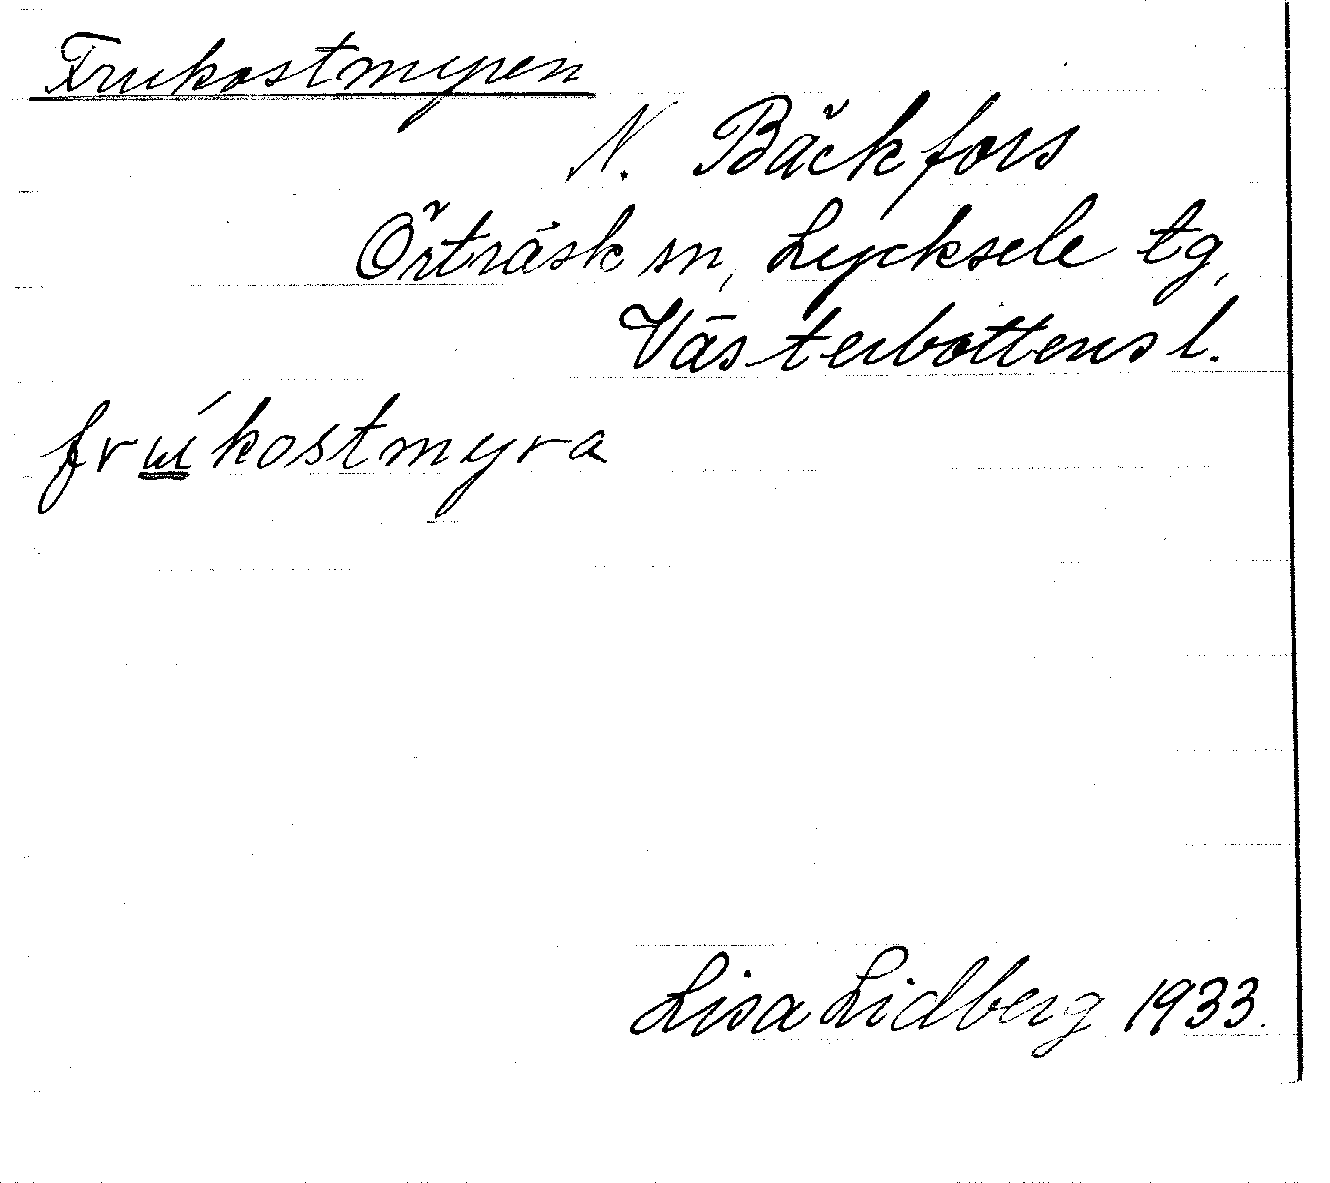 Frukostmyren
N. Bäckfors
Örträsk sn, Lycksele tg,
Västerbottens l.
frúkostmyra
Lisa Lidberg 1933.